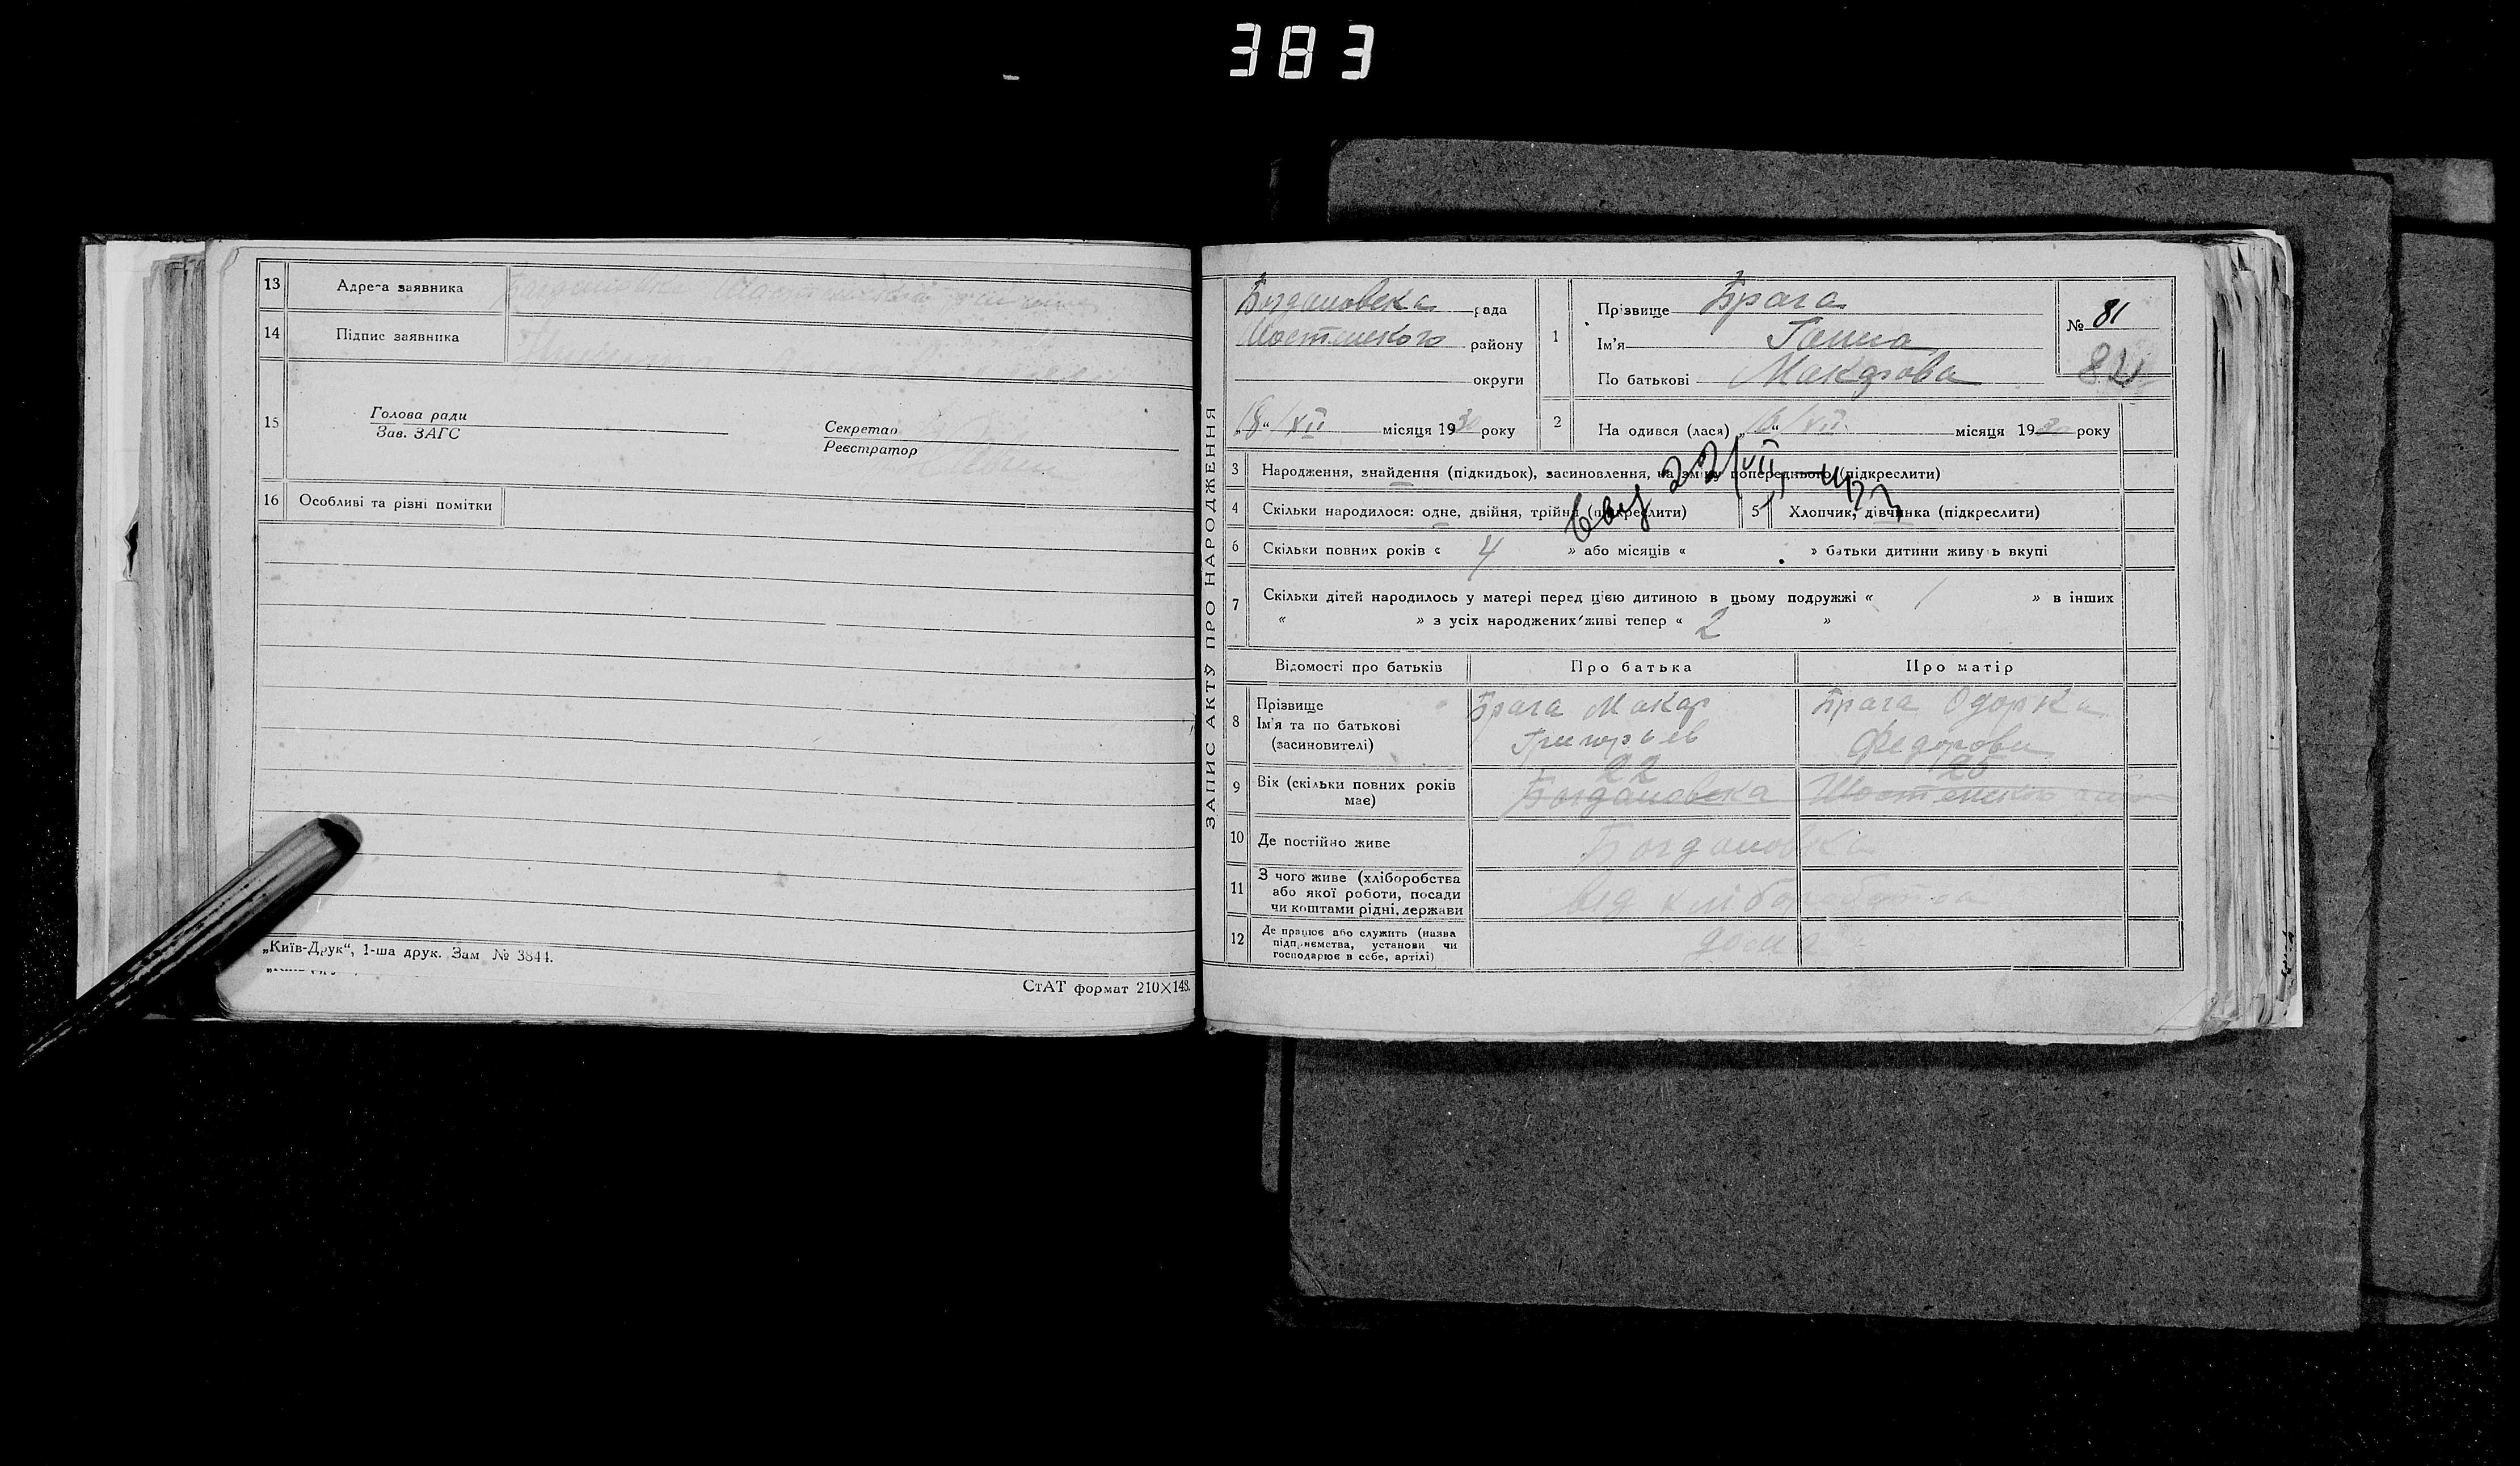 383
13 Адреса заявника
14 Підпис заявника
15 Голова ради
Зав. ЗАГС
Секретар
Реєстратор
16 Особливі та різні помітки
„Київ-Друк“, 1-ша друк. Зам № 3844.
СтАТ формат 210×148.
ЗАПИС АКТУ ПРО НАРОДЖЕННЯ
Богдановска рада
району
округи
„18“ XII місяця 1930 року
1 Прізвище Брага
Ім'я Ганна
По батькові Макарова
№ 81
82
2 Народився (лася) „16“ XII місяця 1930 року
3 Народження, знайдення (підкидьок), засиновлення, на зміну попереднього (підкреслити)
22/VII
4 Скільки народилося: одне, двійня, трійня (підкреслити)
5 Хлопчик, дівчинка (підкреслити)
6 Скільки повних років « 4 » або місяців « » батьки дитини живуть вкупі
7 Скільки дітей народилось у матері перед цією дитиною в цьому подружжі « 1 » в інших
« » з усіх народжених живі тепер « 2 »
Відомості про батьків Про батька Про матір
8 Прізвище
Ім'я та по батькові
(засиновителі)
Брага Макар
Григорьев
Брага Одарка
Федорови
9 Вік (скільки повних років
має)
22
Богдановска
25
10 Де постійно живе Богдановка
11 З чого живе (хліборобства
або якої роботи, посади
чи коштами рідні, держави
від хліборобства
12 Де працює або служить (назва
підприємства, установи чи
господарює в себе, артілі)
дома